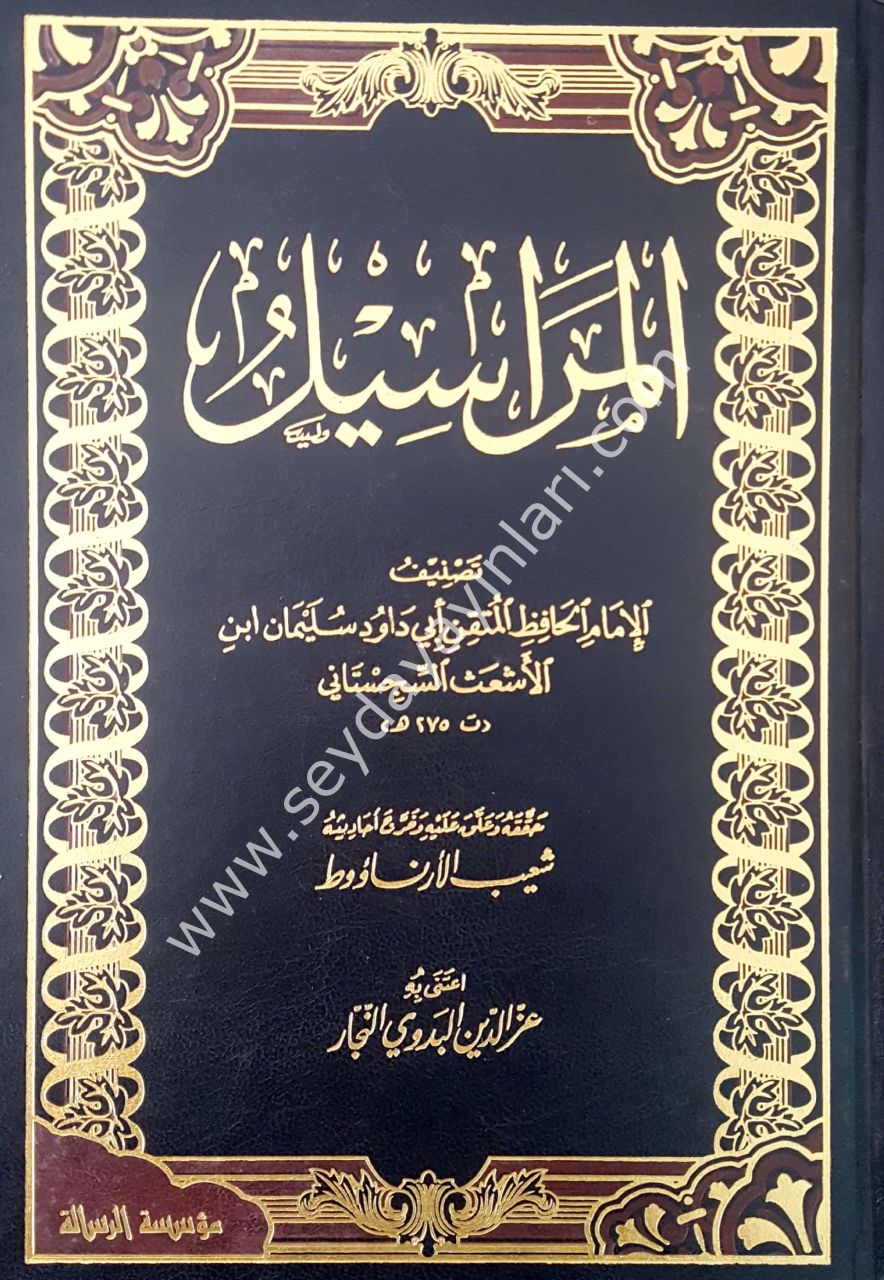 المَرَاسِيْلُ
تَصْنِيْفُ
الإِمَامِ الحَافِظِ المُتْقِنِ أبي دَاوُد سُلَيْمَان ابنِ
الأَشْعَثِ السِّجِسْتَاني
(ت ٢٧٥ هـ)
حَقَّقَهُ وَعَلَّقَ عَلَيْهِ وَخَرَّجَ أحَادِيثَهُ
شعيب الأرناؤوط
اعتَنَى بِهِ
عزّ الدّين البدوي النّجّار
مؤسسة الرسالة
www.seydayayinlari.com